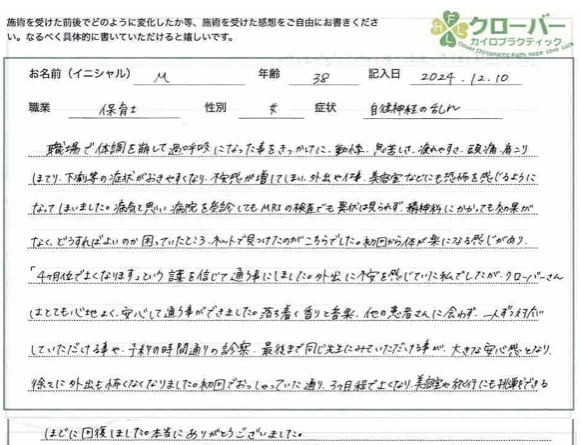 施術を受けた前後でどのように変化したか等、施術を受けた感想をご自由にお書きください。なるべく具体的に書いていただけると嬉しいです。
クローバー
カイロプラクティック
Clover Chiropractic Faith Hope Love Luck
お名前（イニシャル） M 年齢 38 記入日 2024.12.10
職業 保育士 性別 女 症状 自律神経の乱れ
職場で体調を崩して過呼吸になった事をきっかけに、動悸、息苦しさ、疲れやすさ、頭痛、肩こり
ほてり、下痢等の症状がおきやすくなり、不安感が増してしまい、外出や仕事、美容室などにも恐怖を感じるように
なってしまいました。病気と思い病院を受診してもMRIの検査でも異状は見られず、精神科にかかっても効果が
なく、どうすればよいのか困っていたところ、ネットで見つけたのがこちらでした。初回から体が楽になる感じがあり、
「4ヶ月位でよくなります」という言葉を信じて通う事にしました。外出に不安を感じていた私でしたが、クローバーさん
はとても心地よく、安心して通う事ができました。落ち着く香りと音楽、他の患者さんに会わず、一人ずつ対応
していただける事や、予約の時間通りの診察、最後まで同じ先生にみていただける事が、大きな安心感となり、
徐々に外出も怖くなくなりました。初回でおっしゃっていた通り、3ヶ月程でよくなり、美容室や旅行にも挑戦をできる
までに回復しました。本当にありがとうございました。